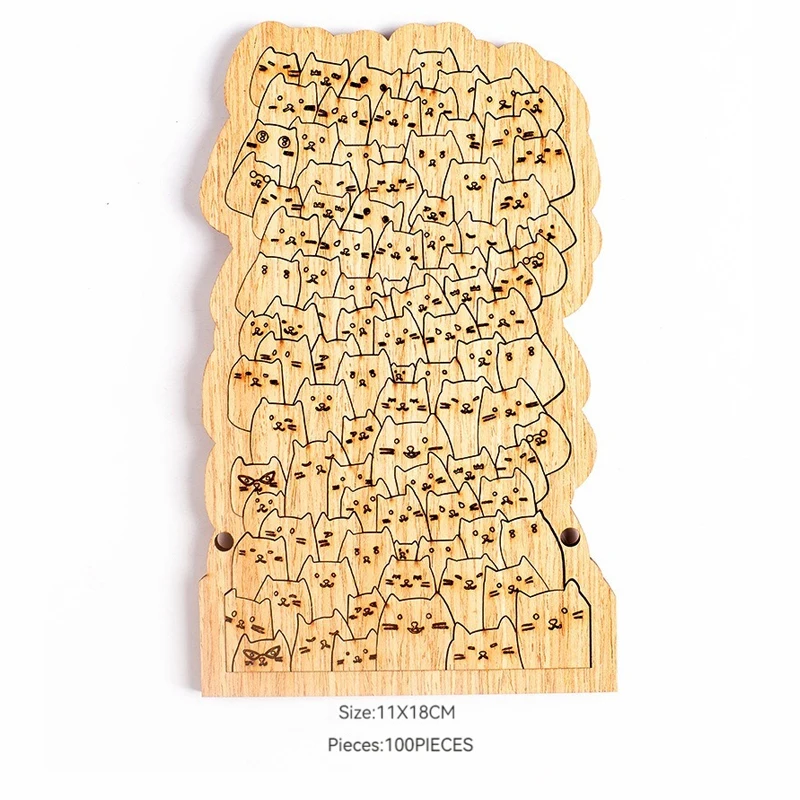 Size:11X18CM
Pieces:100PIECES